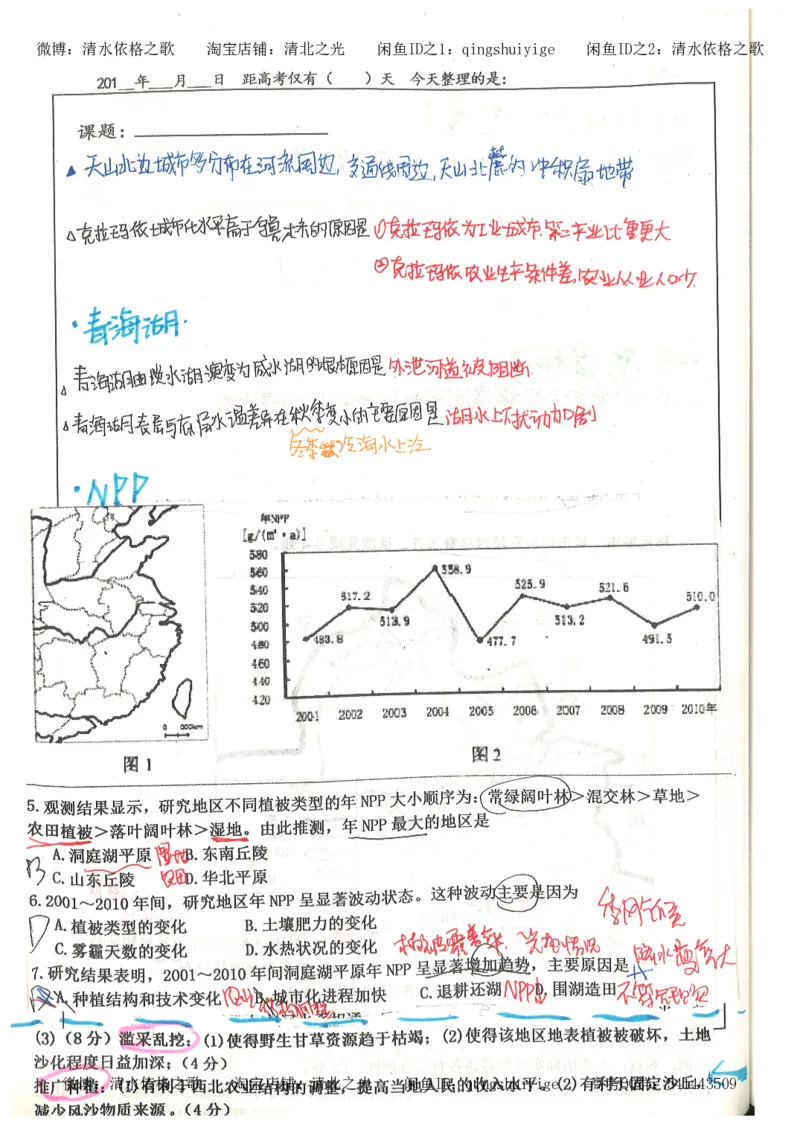 微博：清水依格之歌　淘宝店铺：清北之光　闲鱼ID之1：qingshuiyige　闲鱼ID之2：清水依格之歌
201__年___月___日 距高考仅有（　）天 今天整理的是：
课题：
天山北边城市多分布在河流周边，交通线周边，天山北麓的冲积扇地带
克拉玛依城市化水平高于乌鲁木齐的原因是①克拉玛依为工业城市，第二产业比重更大
②克拉玛依农业生产条件差，农业从业人口少
·青海湖·
青海湖由淡水湖演变为咸水湖的根本原因是外泄河道被阻断
青海湖表层与底层水温差异在秋季变小的主要原因是湖水上下扰动加剧
冬季 冷海水上泛
·NPP
年NPP
[g/(m²·a)]
580
560
540
520
500
480
460
440
420
483.8
517.2
513.9
558.9
477.7
525.9
513.2
521.6
491.5
510.0
2001 2002 2003 2004 2005 2006 2007 2008 2009 2010年
图1
图2
5.观测结果显示，研究地区不同植被类型的年NPP大小顺序为：常绿阔叶林>混交林>草地>
农田植被>落叶阔叶林>湿地。由此推测，年NPP最大的地区是
A.洞庭湖平原 B.东南丘陵
C.山东丘陵 D.华北平原
B
6.2001～2010年间，研究地区年NPP呈显著波动状态。这种波动主要是因为
A.植被类型的变化 B.土壤肥力的变化
C.雾霾天数的变化 D.水热状况的变化
D
7.研究结果表明，2001～2010年间洞庭湖平原年NPP呈显著增加趋势，主要原因是
A.种植结构和技术变化 B.城市化进程加快 C.退耕还湖 D.围湖造田
NPP
(3)（8分）滥采乱挖：(1)使得野生甘草资源趋于枯竭；(2)使得该地区地表植被被破坏，土地
沙化程度日益加深；（4分）
推广种植：(1)有利于西北农业结构的调整，提高当地人民的收入水平。(2)有利于固定沙丘，
减少风沙物质来源。（4分）